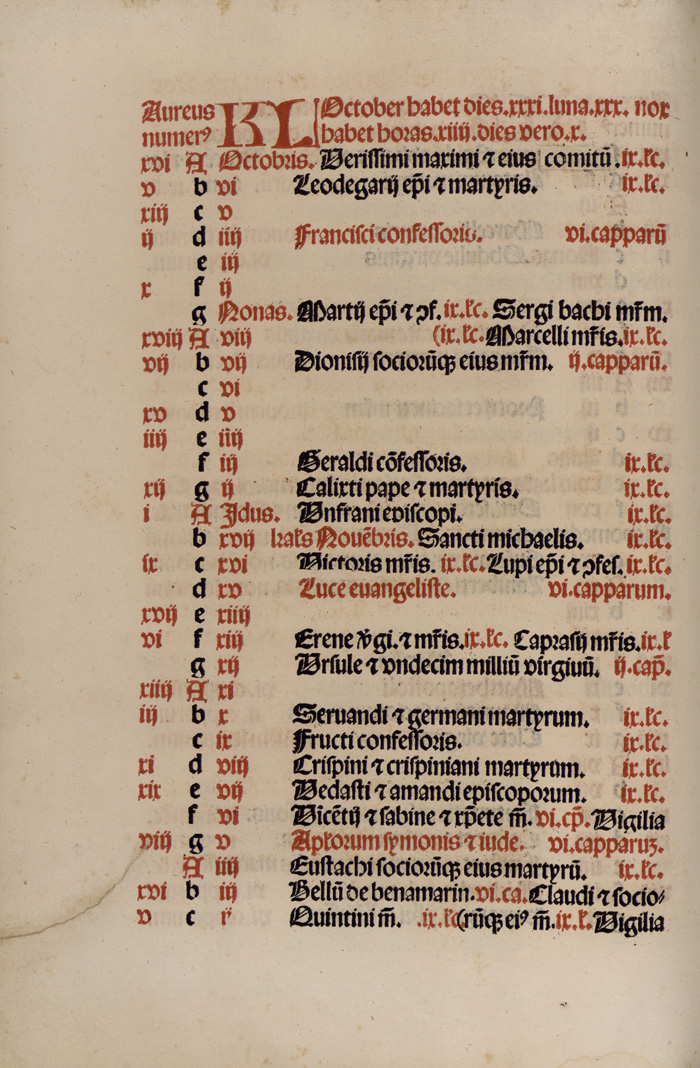 Aureus KL October habet dies.xxxi.luna.xxx. nox
numerꝰ habet horas.xiiij.dies vero.x.
xvi A Octobris. Verissimi maximi ⁊ eius comitū.ix.lc.
v b vi Leodegarij ep̄i ⁊ martyris. ix.lc.
xiij c v
ij d iiij Francisci confessoris. vi.capparū
e iij
x f ij
g Nonas. Martij ep̄i ⁊ ↄf.ix.lc. Sergi bachi mr̄m.
xviij A viij (ix.lc.Marcelli mr̄is.ix.lc.
vij b vij Dionisij sociorūqꝫ eius mr̄m. ij.capparū.
c vi
xv d v
iiij e iiij
f iij Geraldi cōfessoris. ix.lc.
xij g ij Calixti pape ⁊ martyris. ix.lc.
i A Idus. Vnfrani episcopi. ix.lc.
b xvij kal's Nouēbris. Sancti michaelis. ix.lc.
ix c xvi Victoris mr̄is. ix.lc.Lupi ep̄i ⁊ ↄfes.ix.lc.
d xv Luce euangeliste. vi.capparum.
xvij e xiiij
vi f xiij Erene v̄gi.⁊ mr̄is.ix.lc. Caprasij mr̄is.ix.l
g xij Vrsule ⁊ vndecim milliū virginū. ij.cap̄.
xiiij A xi
iij b x Seruandi ⁊ germani martyrum. ix.lc.
c ix Fructi confessoris. ix.lc.
xi d viij Crispini ⁊ crispiniani martyrum. ix.lc.
xix e vij Vedasti ⁊ amandi episcoporum. ix.lc.
f vi Vicētij ⁊ sabine ⁊ xp̄ete m̄. vi.cp̄. Vigilia
viij g v Apl'orum symonis ⁊ iude. vi.capparuꝫ.
A iiij Eustachi sociorūqꝫ eius martyrū. ix.lc.
xvi b iij Bellū de benamarin.vi.ca.Claudi ⁊ socio/
v c ij Quintini m̄. .ix.lc(rūqꝫ eiꝰ m̄.ix.l.Vigilia